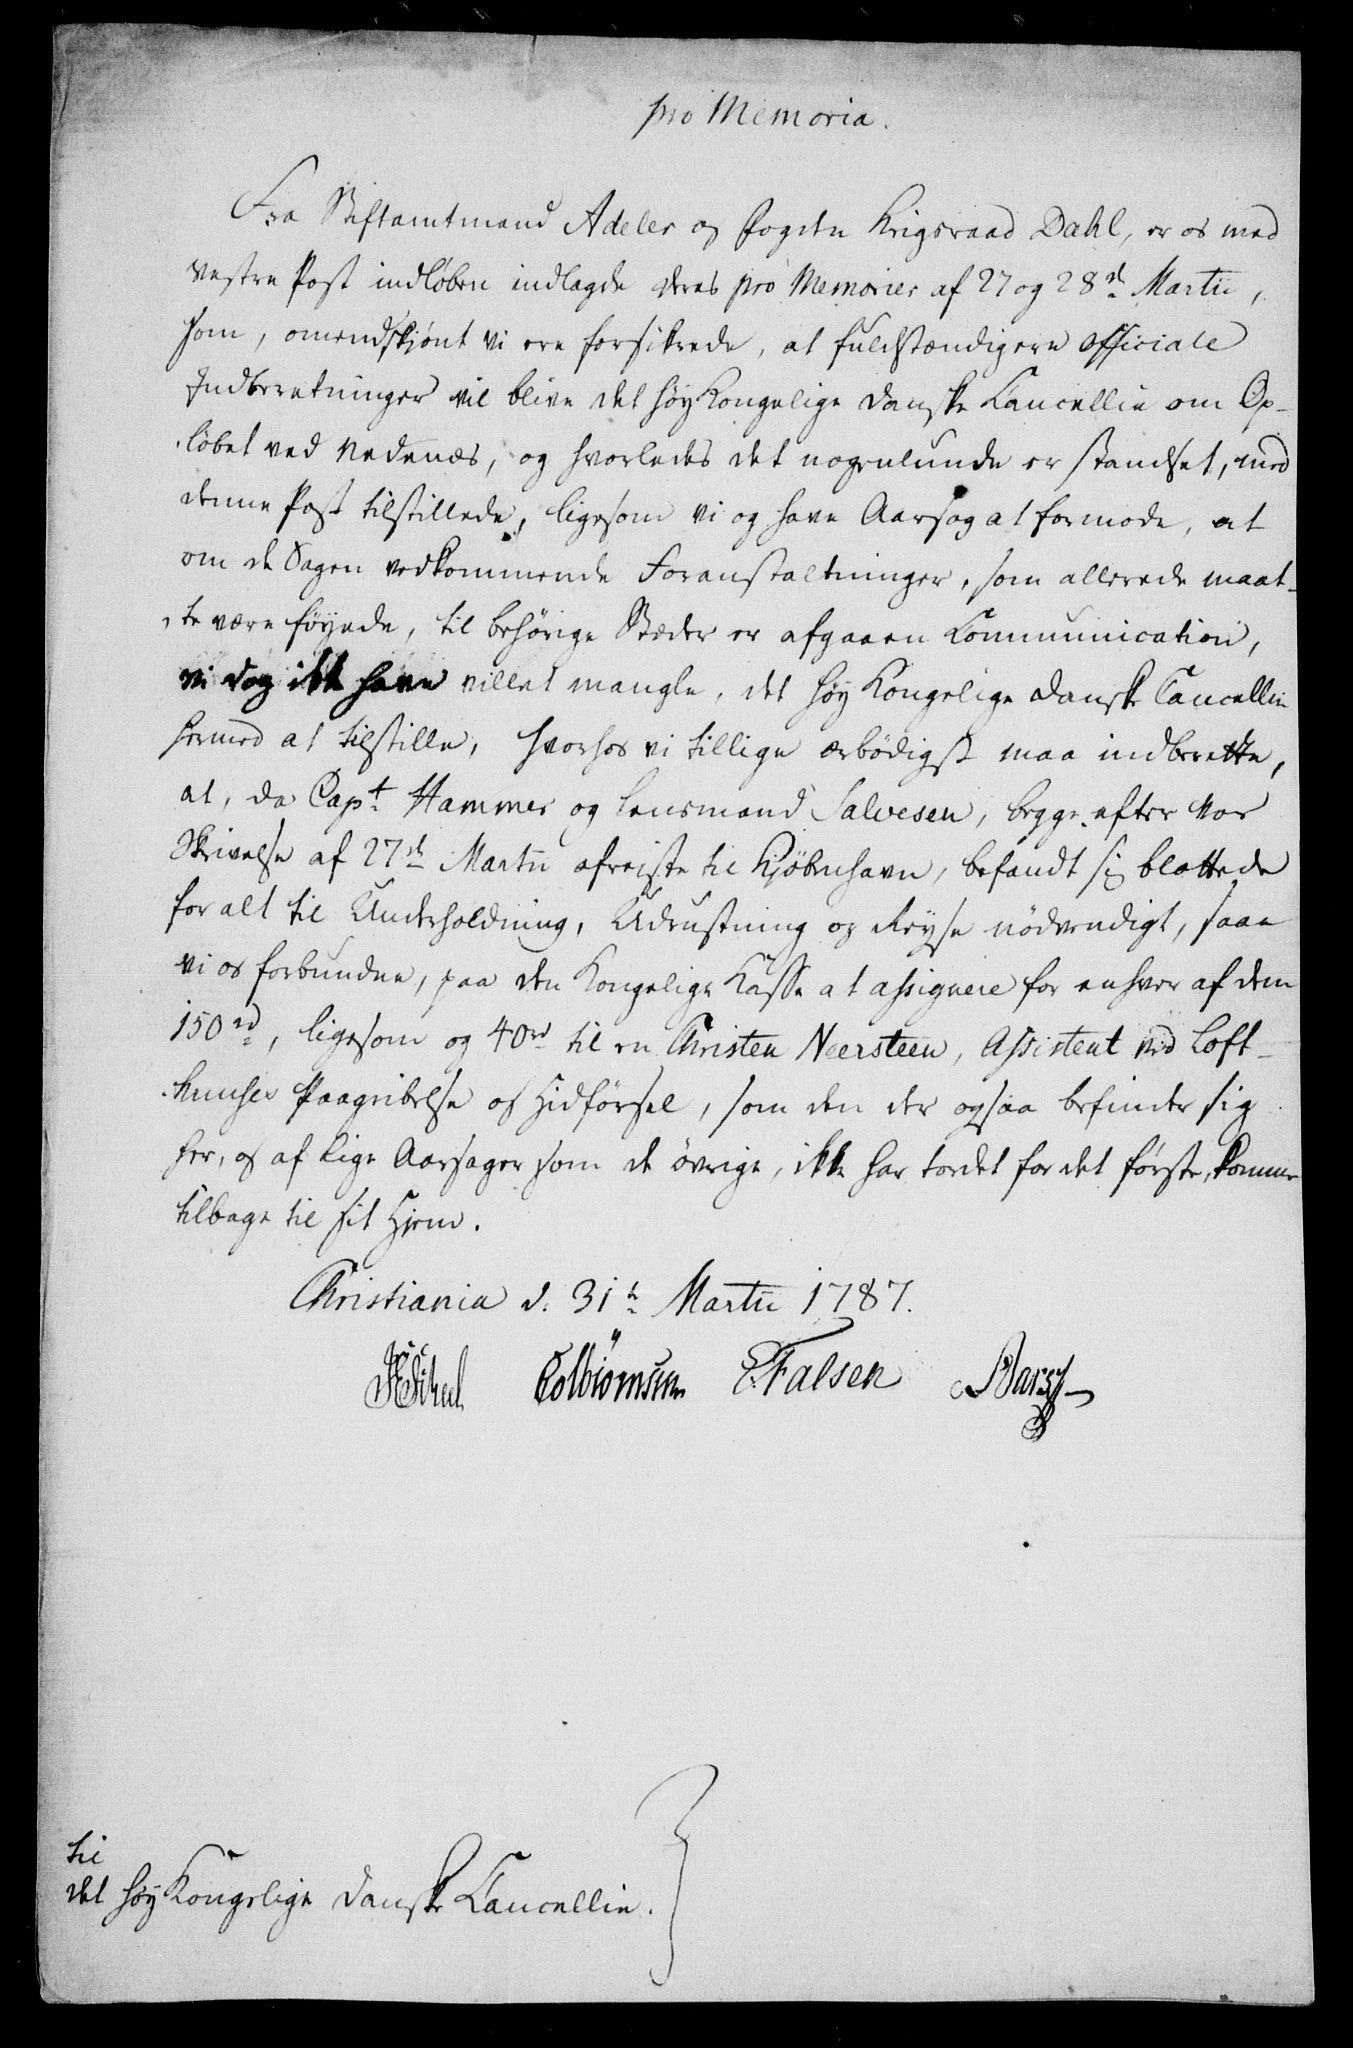 pro Memoria.
Fra Stiftamtmand Adeler og Fogden Krigsraad Dahl, er os med
Vestre Post indløben indlagde deres pro Memorier af 27 og 28d Martii,
som, omendskjønt vi ere forsikrede, at fuldstændigere officiale
Indberetninger vil blive det høy Kongelige danske Cancellie om Op-
løbet ved Nedenæs, og hvorledes det nogenlunde er standset, med
denne Post tilstillede, ligesom vi og have Aarsag at formode, at
om de Sagen vedkommende Foranstaltninger, som allerede maat-
te være føyede, til behørige Stæder er afgaaen Communication,
vi dog ikke have villet mangle, det høy Kongelige danske Cancellie
hermed at tilstille, hvorhos vi tillige ærbødigst maa indberette,
at, da Capt. Hammer og Lensmand Salvesen, begge efter vor
Skrivelse af 27d Martii afreiste til Kjøbenhavn, befandt sig blottede
for alt til Underholdning, Udrustning og Reyse nødvendigt, saae
vi os forbundne, paa den Kongelige Kasse at assignere for enhver af dem
150rd, ligesom og 40rd til en Christen Neersteen, Assistent ved Loft-
huuses Paagribelse og Hidførsel, som den der ogsaa befinder sig
her, og af lige Aarsager som de øvrige, ikke har tordet for det første, komme
tilbage til sit Hjem.
Christiania d. 31t Martii 1787.
Colbiørnsen E. Falsen
til
det høy Kongelige danske Cancellie.